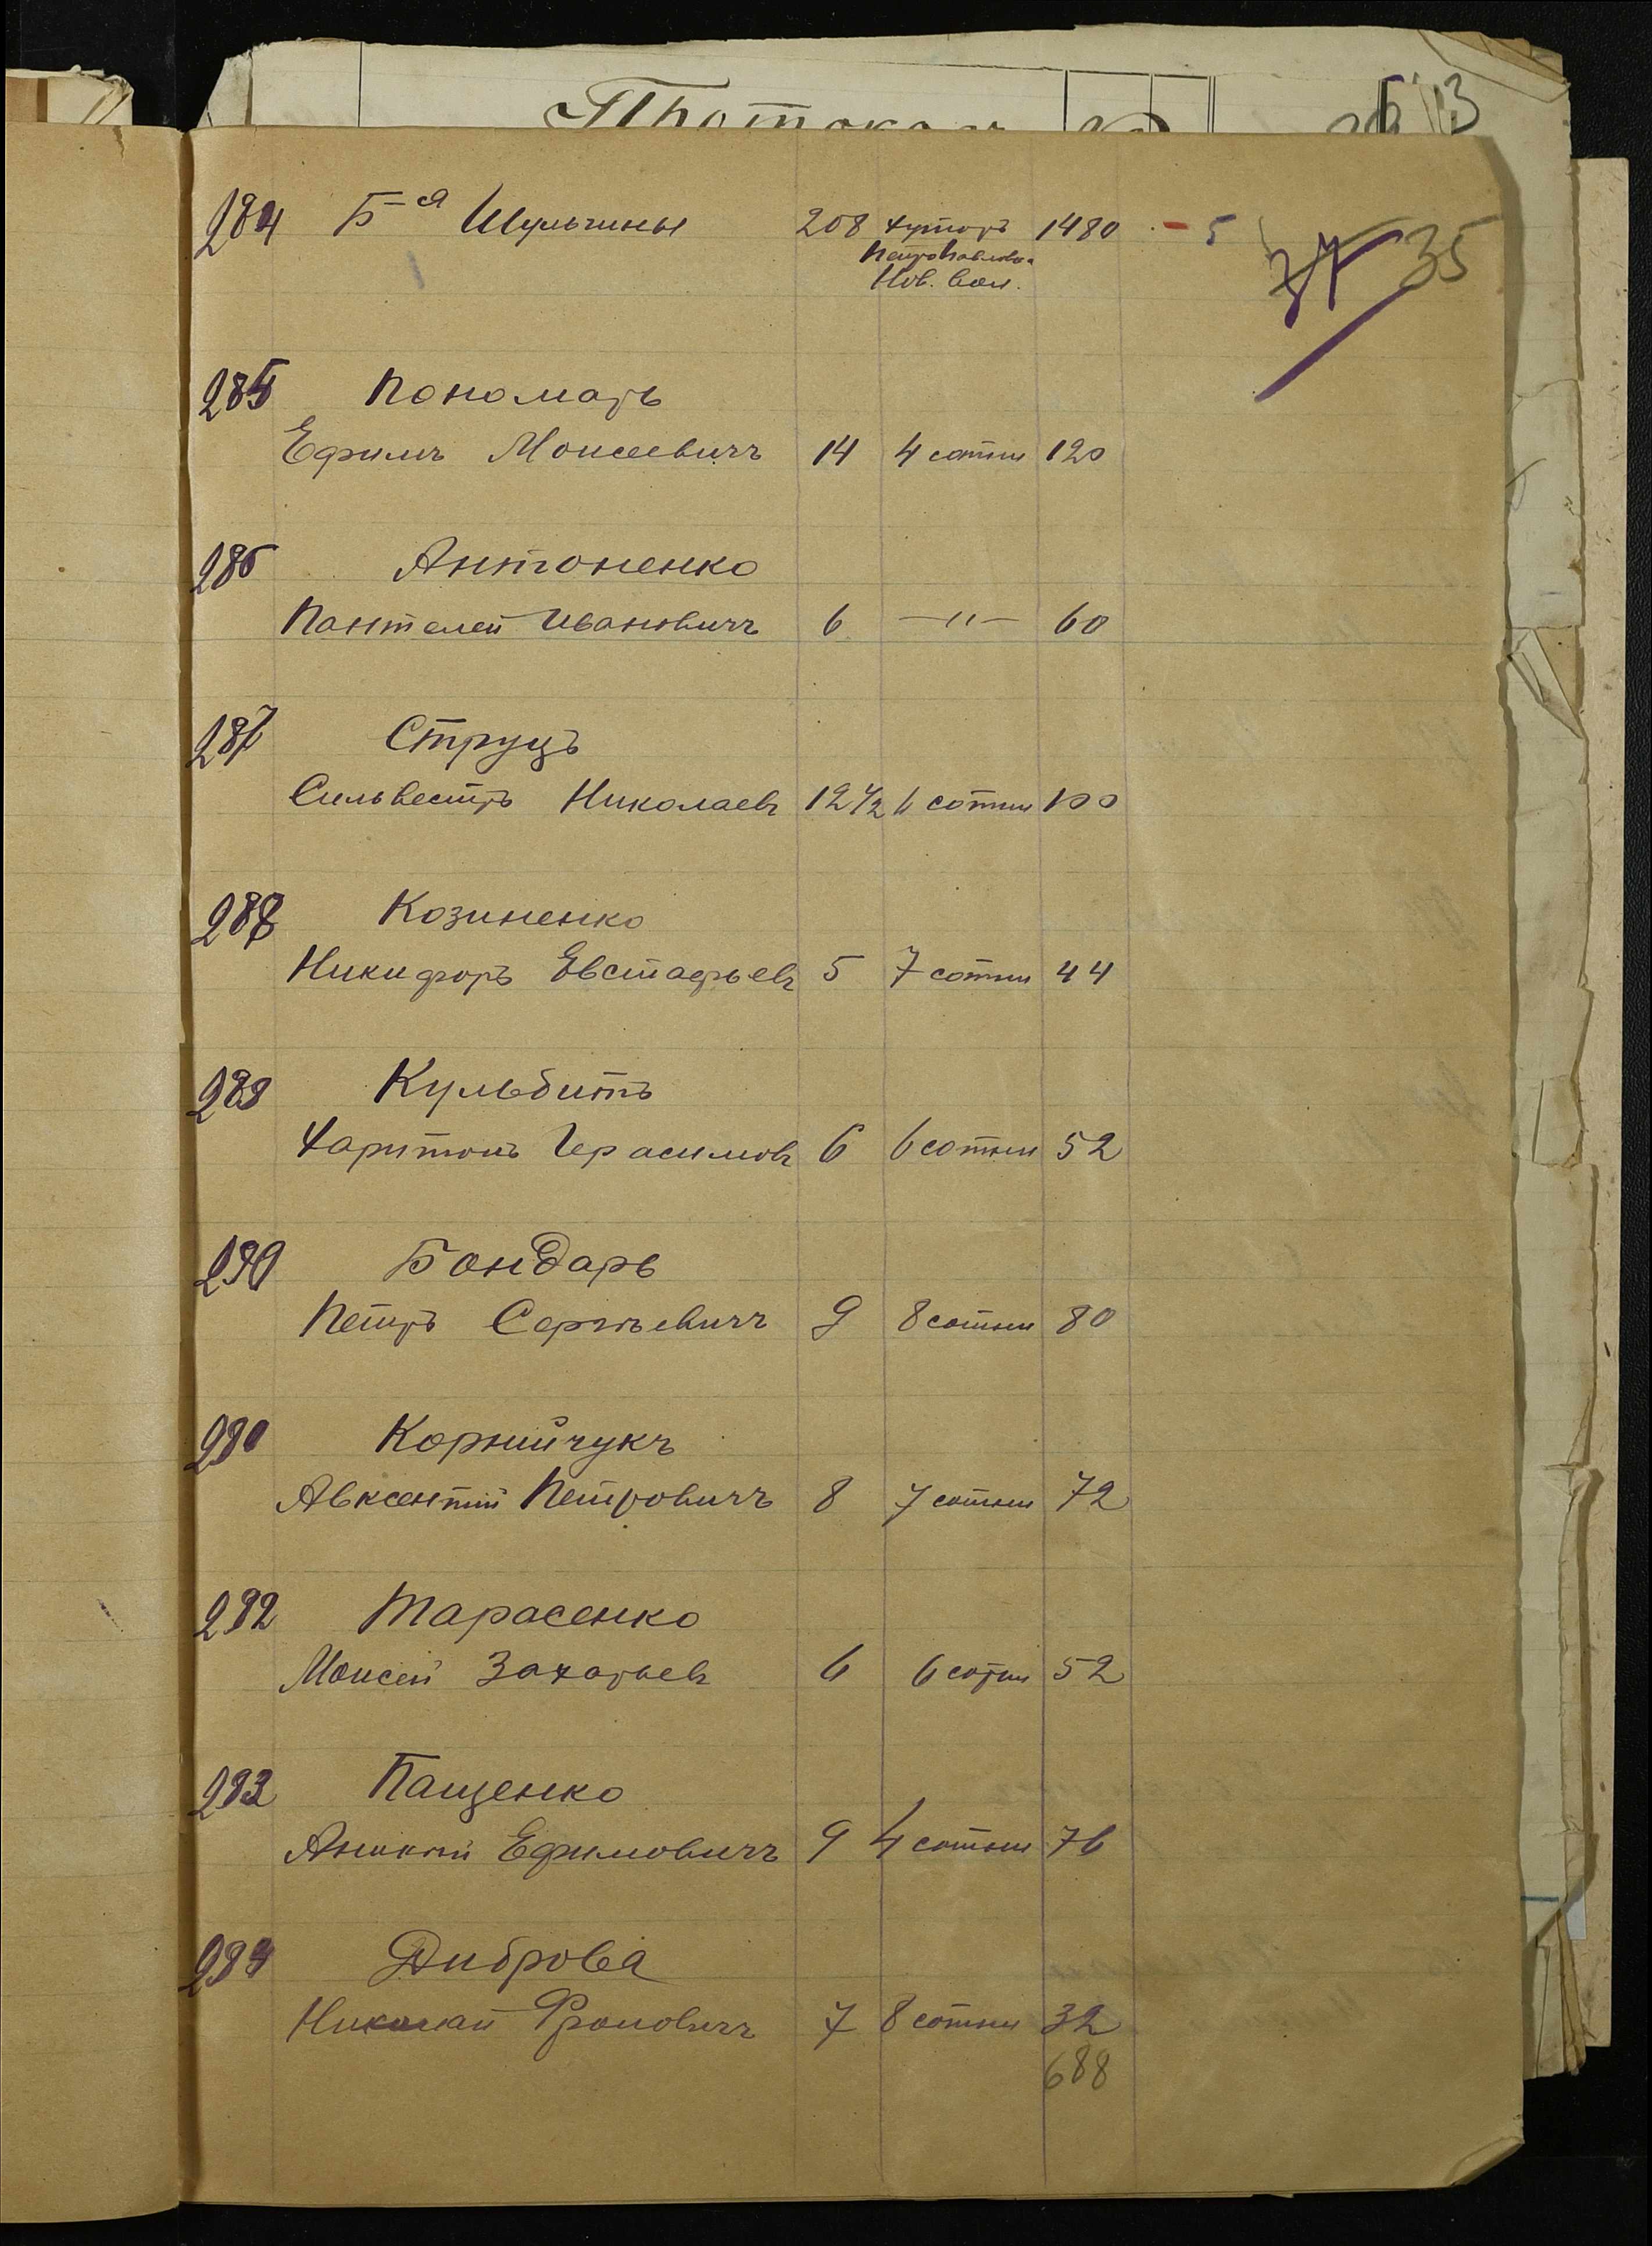 Протокол
284 Б-я Шульгины 208 хуторъ 1480 - 5 35
Петропавловка
Нов. вол.
285 Пономарь
Ефимъ Моисеевичъ 14 4 сотни 120
286 Антоненко
Пантелей Ивановичъ 6 —"— 60
287 Струцъ
Сильвестръ Николаевъ 12 1/2 6 сотни 100
288 Козиненко
Никифоръ Евстафьевъ 5 7 сотни 44
289 Кульбитъ
Харитонъ Герасимовъ 6 6 сотни 52
290 Бондарь
Петръ Сергѣевичъ 9 8 сотни 80
Корнийчукъ
Авксентий Петровичъ 8 7 сотни 72
292 Тарасенко
Моисей Захарьев 6 6 сотни 52
293 Пащенко
Ефимовичъ 9 4 сотни 76
294 Диброва
Николай Фроловичъ 7 8 сотни 32
688